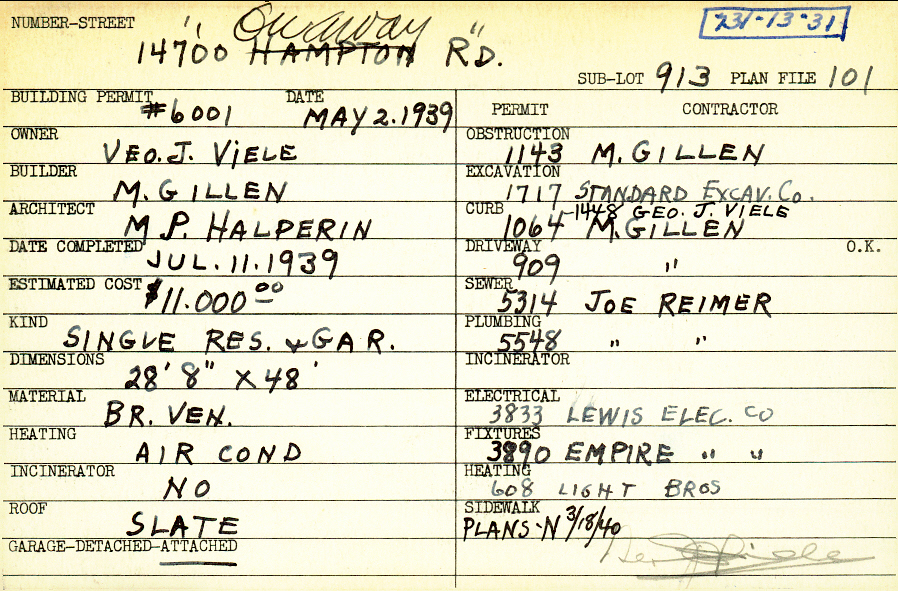 NUMBER-STREET
Onaway
14700 HAMPTON RD.
231-13-31
SUB-LOT 913 PLAN FILE 101
BUILDING PERMIT #6001 DATE MAY 2.1939
PERMIT CONTRACTOR
OWNER
VEO. J. VIELE
OBSTRUCTION
1143 M. GILLEN
BUILDER
M. GILLEN
EXCAVATION
1717 STANDARD EXCAV. CO.
ARCHITECT
M P. HALPERIN
CURB -1448 GEO. J. VIELE
1064 M. GILLEN
DATE COMPLETED
JUL. 11. 1939
DRIVEWAY O.K.
909 "
ESTIMATED COST $11.000 00
SEWER
5314 JOE REIMER
KIND
SINGLE RES. & GAR.
PLUMBING
5548 " "
DIMENSIONS
28' 8" X 48'
INCINERATOR
MATERIAL
BR. VEN.
ELECTRICAL
3833 LEWIS ELEC. CO
HEATING
AIR COND
FIXTURES
3890 EMPIRE " "
INCINERATOR
NO
HEATING
608 LIGHT BROS
ROOF
SLATE
SIDEWALK
PLANS-N 3/18/40
GARAGE-DETACHED-ATTACHED